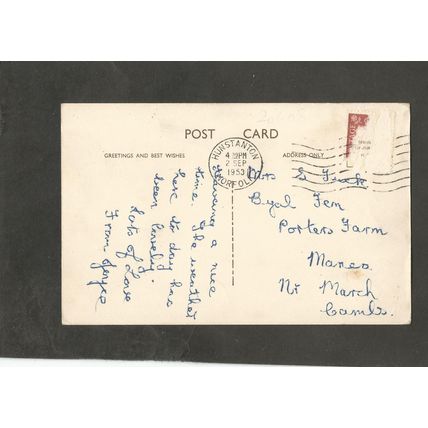 POST CARD
GREETINGS AND BEST WISHES
ADDRESS ONLY
HUNSTANTON
4 PM
2 SEP
1953
NORFOLK
Having a nice
time. The weather
here to day has
been lovely.
Lots of Love
From
Mrs G
Byal Fen
Porters Farm
Manea
Nr March
Cambs.